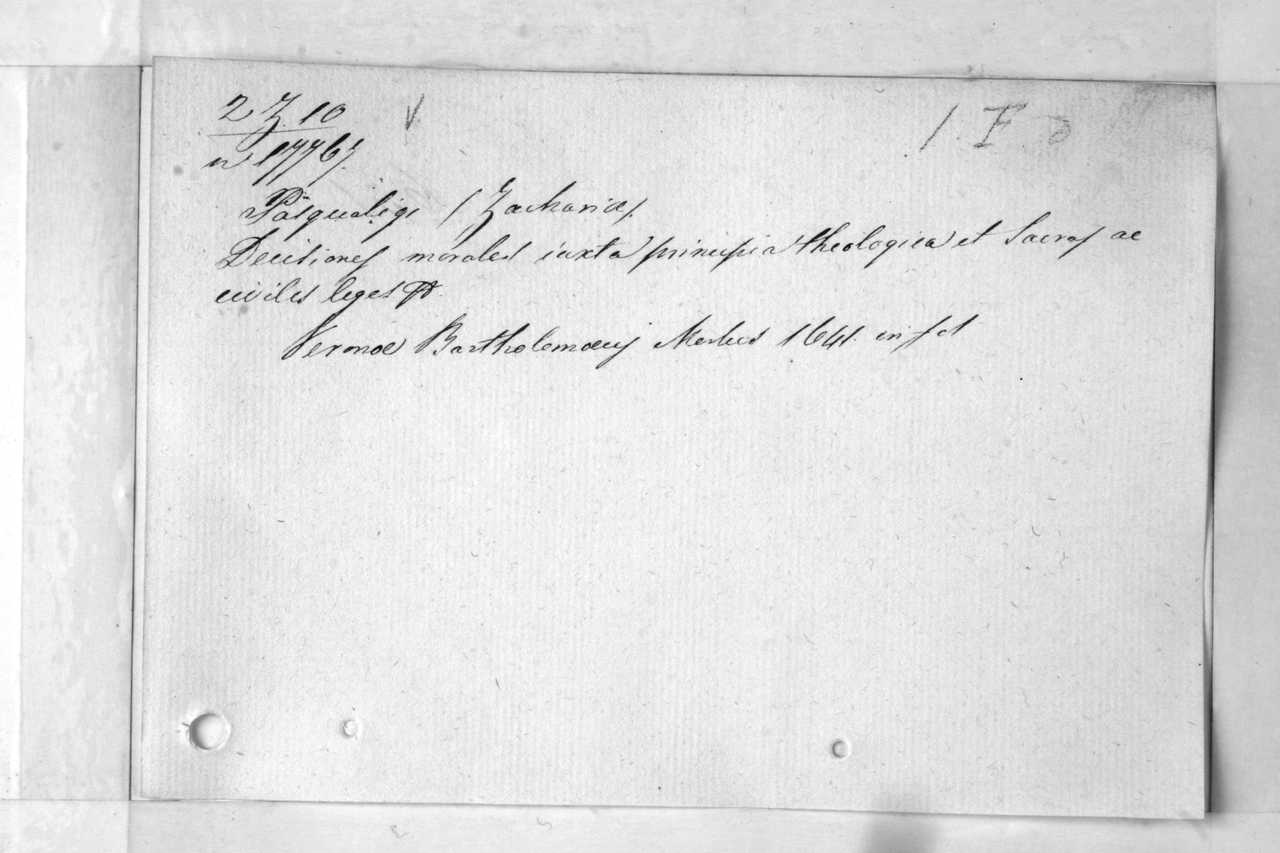 2 Z. 10
n. 17767.
Pasqualigs / Zacharias.
Decisiones morales iuxta principia theologica et Sacras ac
civiles leges
Veronae Bartholomaeus Merlus 1641. in fol